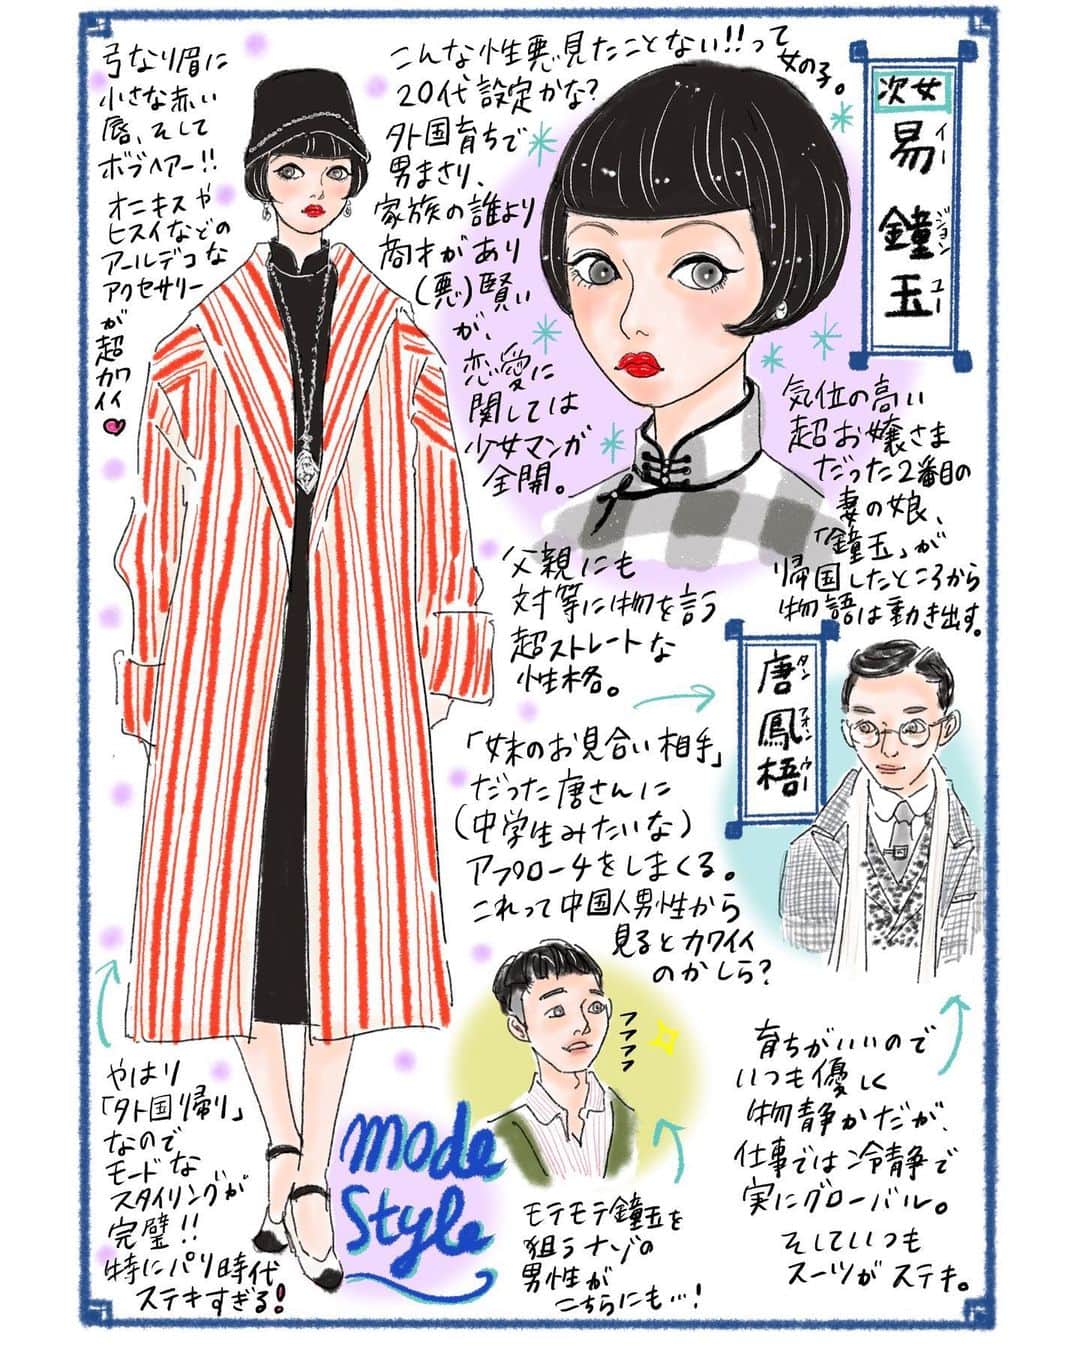 弓なり眉に
小さな赤い
唇、そして
ボブヘアー!!
オニキスや
ヒスイなどの
アールデコな
アクセサリー
が超カワイイ
こんな性悪見たことない!!って
女の子。
20代設定かな?
外国育ちで
男まさり、
家族の誰より
商才があり
(悪)賢い
が、
恋愛に
関しては
少女マンガ
全開。
次女
易鐘玉
イージョンユー
気位の高い
超お嬢さま
だった2番目の
妻の娘、
「鐘玉」が
帰国したところから
物語は動き出す。
父親にも
対等に物を言う
超ストレートな
性格。
唐鳳梧
タンフォンウー
「妹のお見合い相手」
だった唐さんに
(中学生みたいな)
アプローチをしまくる。
これって中国人男性から
見るとカワイイ
のかしら?
フフフフ
やはり
「外国帰り」
なので
モードな
スタイリングが
完璧!!
特にパリ時代
ステキすぎる!
mode
Style
モテモテ鐘玉を
狙うナゾの
男性が
こちらにも…!
育ちがいいので
いつも優しく
物静かだが、
仕事では冷静で
実にグローバル。
そしていつも
スーツがステキ。